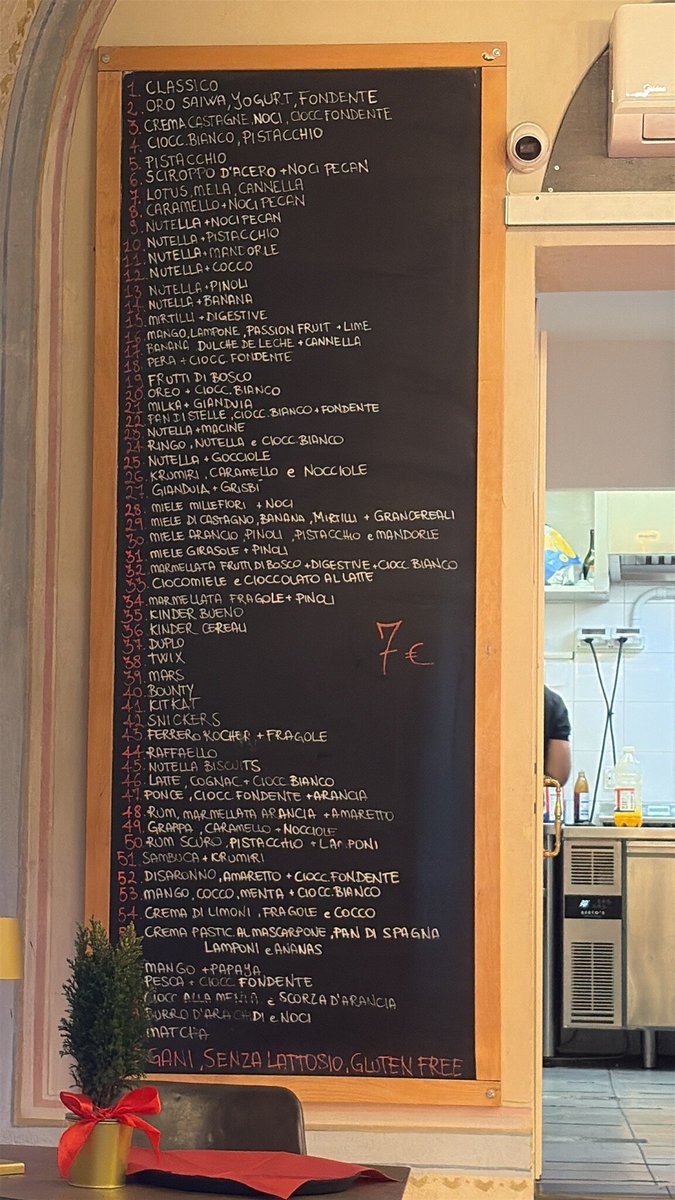 1. CLASSICO
2. ORO SAIWA, YOGURT, FONDENTE
3. CREMA CASTAGNE, NOCI, CIOCC FONDENTE
4. CIOCC. BIANCO, PISTACCHIO
5. PISTACCHIO
6. SCIROPPO D'ACERO + NOCI PECAN
7. LOTUS, MELA, CANNELLA
8. CARAMELLO + NOCI PECAN
9. NUTELLA + NOCI PECAN
10. NUTELLA + PISTACCHIO
11. NUTELLA + MANDORLE
12. NUTELLA + COCCO
13. NUTELLA + PINOLI
14. NUTELLA + BANANA
15. MIRTILLI + DIGESTIVE
16. MANGO, LAMPONE, PASSION FRUIT + LIME
17. BANANA DULCHE DE LECHE + CANNELLA
18. PERA + CIOCC. FONDENTE
19. FRUTTI DI BOSCO
20. OREO + CIOCC. BIANCO
21. MILKA + GIANDUIA
22. PAN DI STELLE, CIOCC. BIANCO + FONDENTE
23. NUTELLA + MACINE
24. RINGO, NUTELLA e CIOCC. BIANCO
25. NUTELLA + GOCCIOLE
26. KRUMIRI, CARAMELLO e NOCCIOLE
27. GIANDUIA + GRISBÍ
28. MIELE MILLEFIORI + NOCI
29. MIELE DI CASTAGNO, BANANA, MIRTILLI + GRANCEREALI
30. MIELE ARANCIO, PINOLI, PISTACCHIO e MANDORLE
31. MIELE GIRASOLE + PINOLI
32. MARMELLATA FRUTTI DI BOSCO + DIGESTIVE + CIOCC BIANCO
33. CIOCOMIELE e CIOCCOLATO AL LATTE
34. MARMELLATA FRAGOLE + PINOLI
35. KINDER BUENO
36. KINDER CEREALI
37. DUPLO
38. TWIX
39. MARS
40. BOUNTY
41. KIT KAT
42. SNICKERS
43. FERRERO ROCHER + FRAGOLE
44. RAFFAELLO
45. NUTELLA BISCUITS
46. LATTE, COGNAC + CIOCC. BIANCO
47. PONCE, CIOCC FONDENTE + ARANCIA
48. RUM, MARMELLATA ARANCIA + AMARETTO
49. GRAPPA, CARAMELLO + NOCCIOLE
50. RUM SCURO, PISTACCHIO + LAMPONI
51. SAMBUCA + KRUMIRI
52. DISARONNO, AMARETTO + CIOCC. FONDENTE
53. MANGO, COCCO, MENTA + CIOCC. BIANCO
54. CREMA DI LIMONI, FRAGOLE e COCCO
CREMA PASTIC. AL MASCARPONE, PAN DI SPAGNA
LAMPONI e ANANAS
MANGO + PAPAYA
PESCA + CIOCC FONDENTE
CIOCC ALLA MENTA e SCORZA D'ARANCIA
BURRO D'ARACHIDI e NOCI
MATCHA
GANI, SENZA LATTOSIO, GLUTEN FREE
7 €
Midea